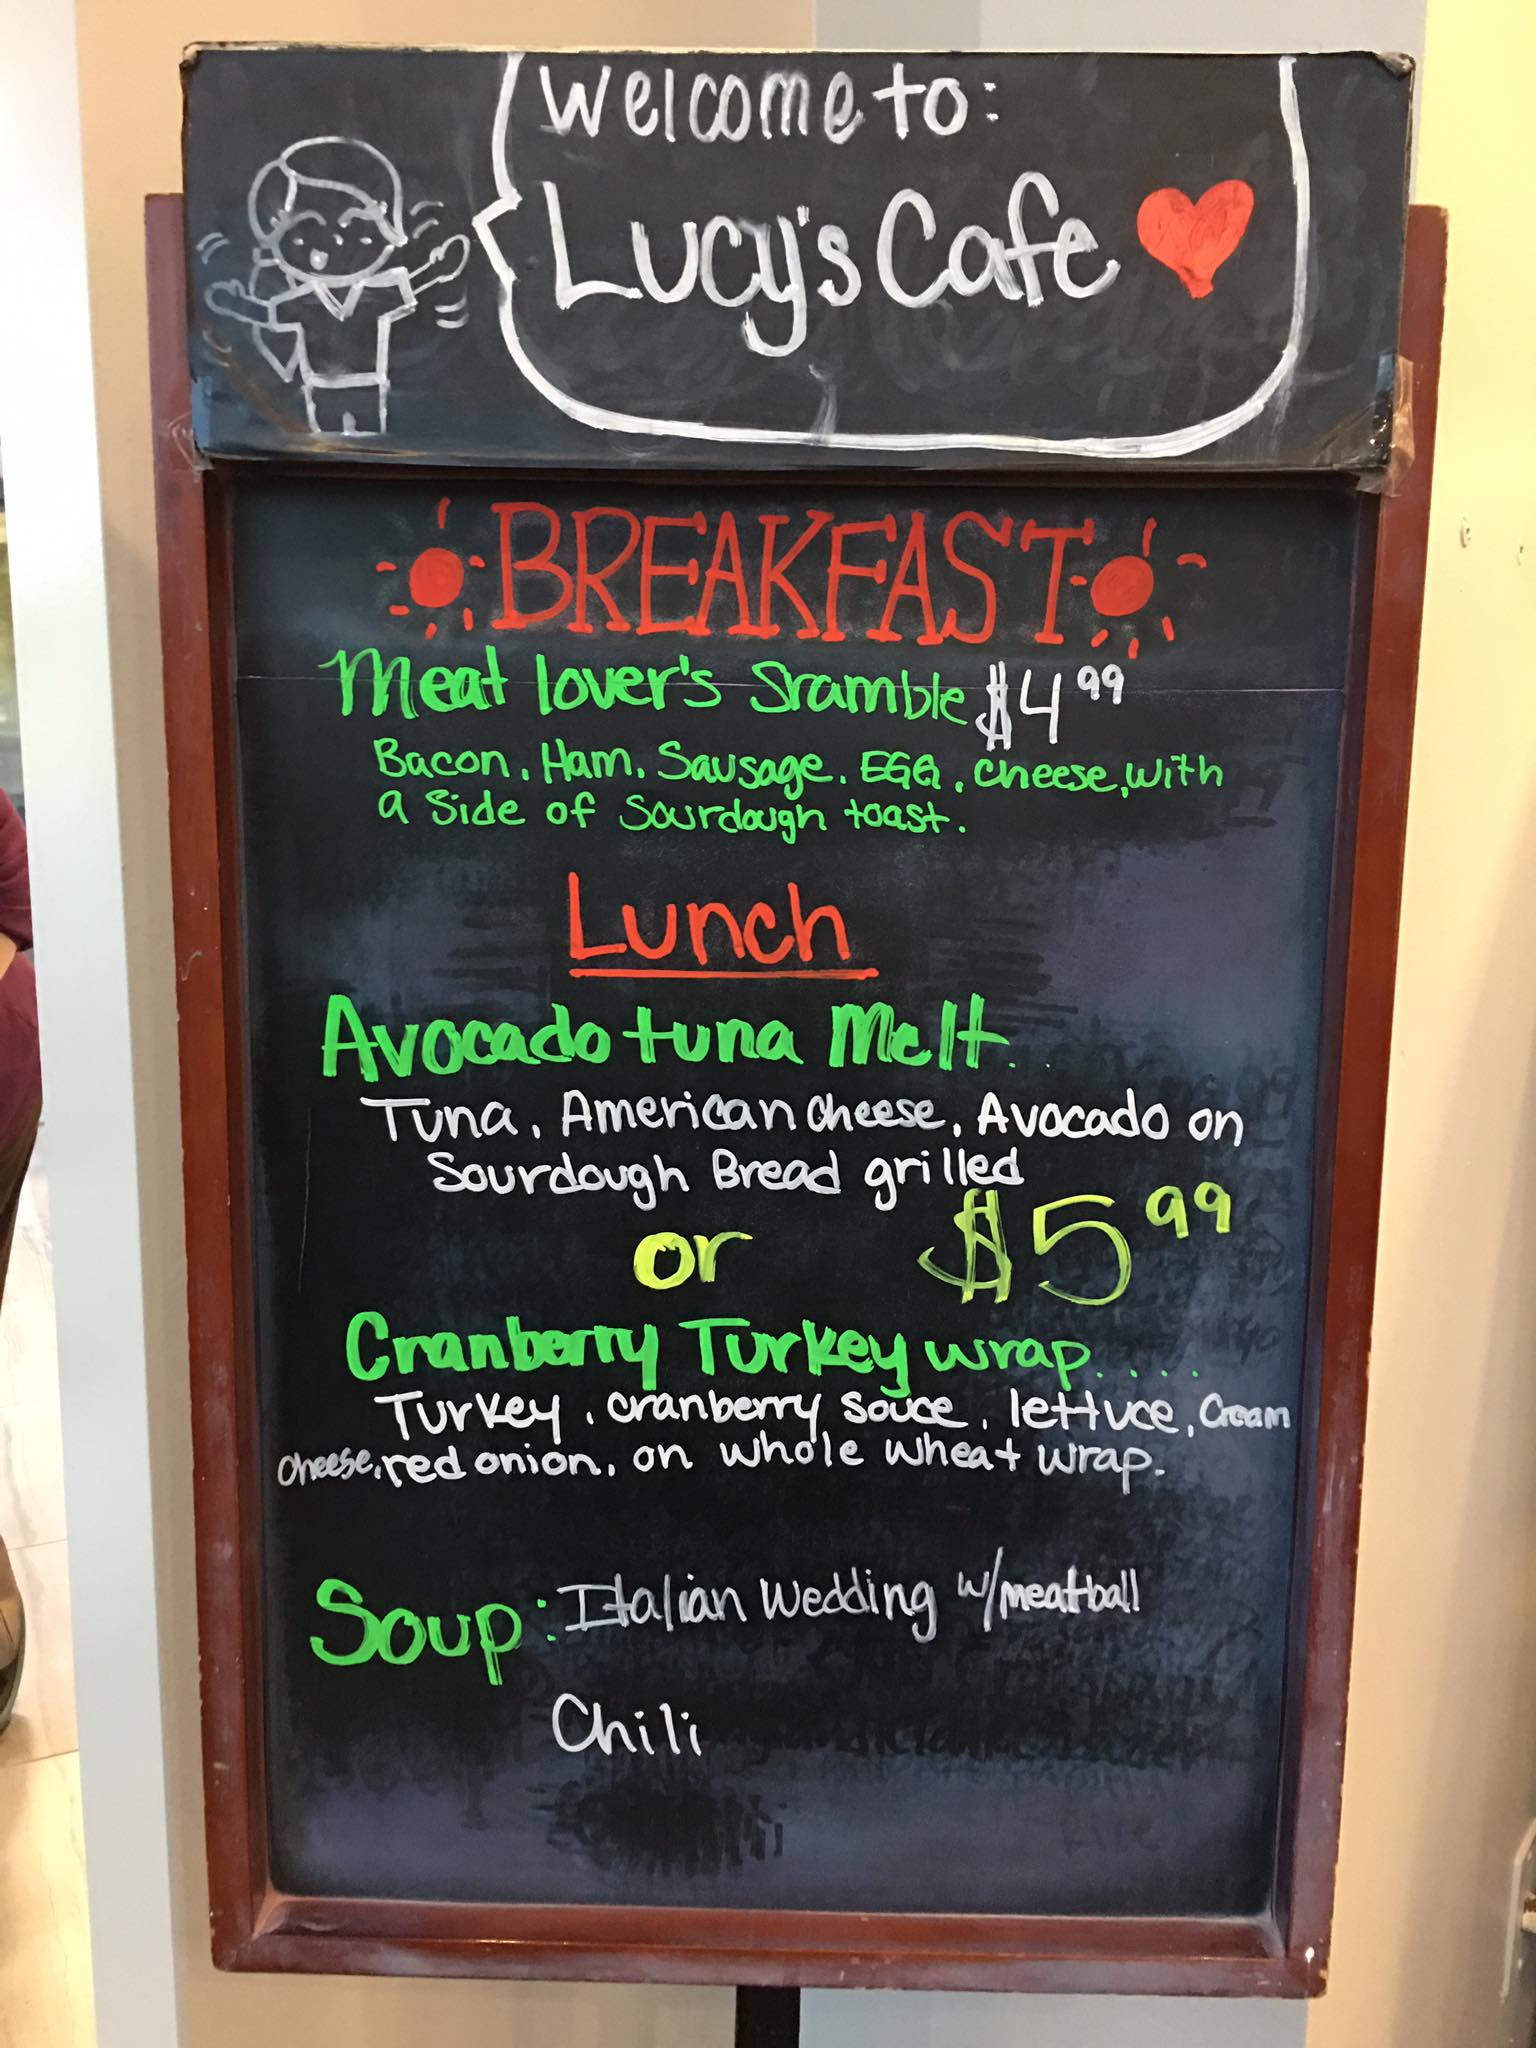 Welcome to:
Lucy's Cafe
BREAKFAST
Meat lover's Sramble $4 99
Bacon, Ham, Sausage, EGG, cheese, with
a side of Sourdough toast.
Lunch
Avocado tuna Melt..
Tuna, American cheese, Avocado on
Sourdough Bread grilled
or $5 99
Cranberry Turkey wrap....
Turkey, cranberry souce, lettuce, Cream
cheese, red onion, on whole wheat wrap.
Soup: Italian Wedding w/meatball
Chili